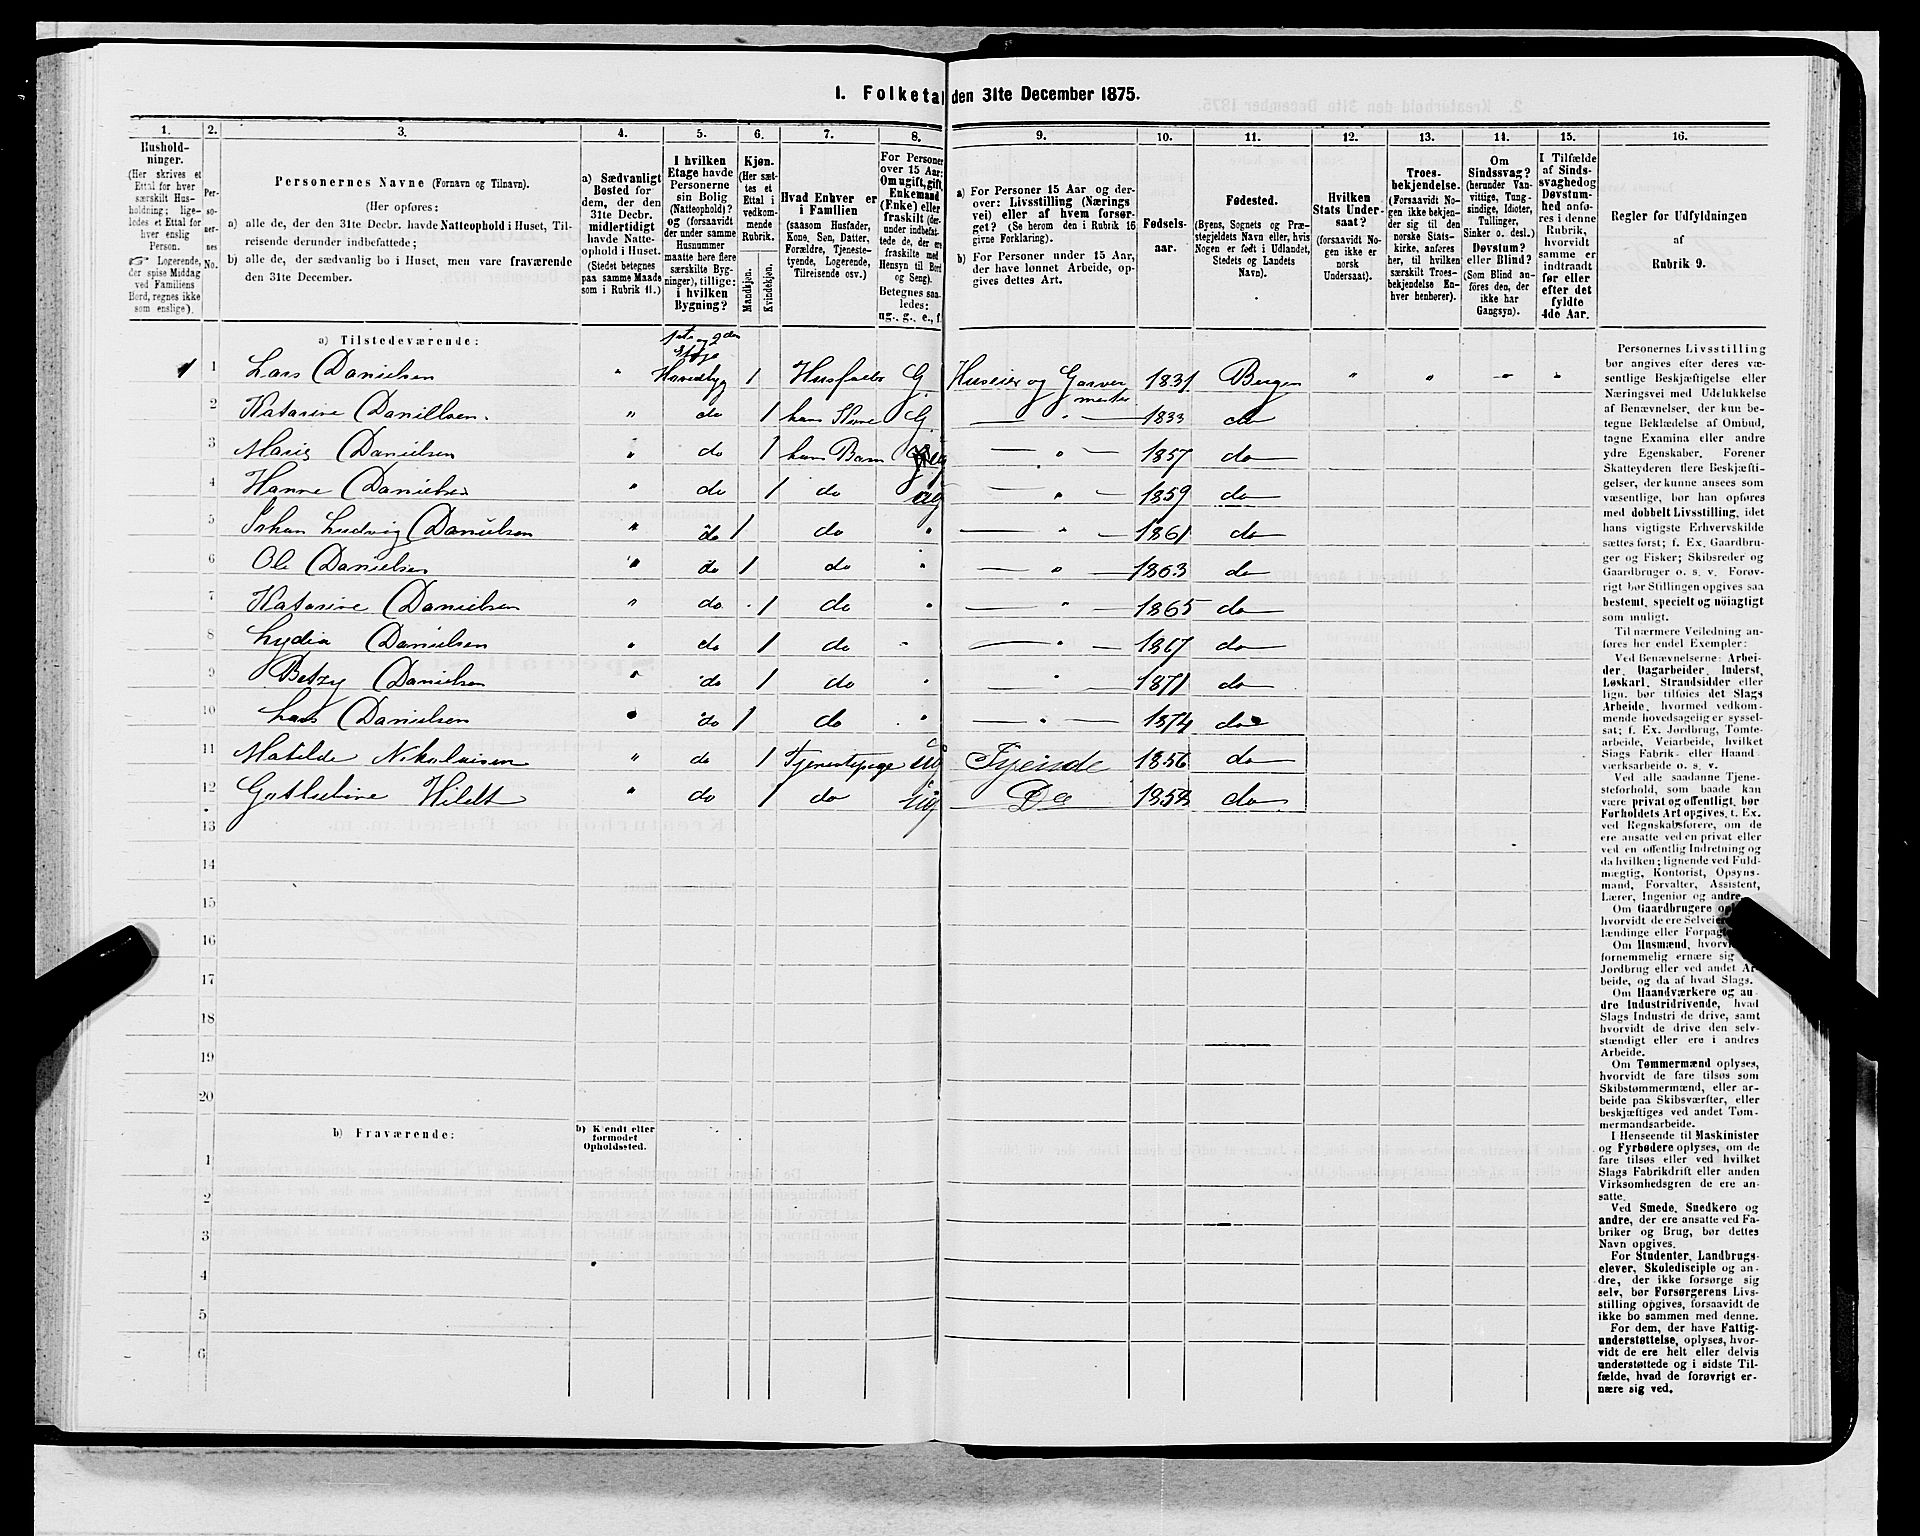 1. Folketal den 31te December 1875.
1.
Hushold-
ninger.
(Her skrives et
Ettal for hver
særskilt Hus-
holdning; lige-
ledes et Ettal for
hver enslig
Person.
☞ Logerende,
der spise Middag
ved Familiens
Bord, regnes ikke
som enslige).
2.
Per-
so-
ner-
nes
No.
3.
Personernes Navne (Fornavn og Tilnavn).
(Her opføres:
a) alle de, der den 31te Decbr. havde Natteophold i Huset, Til-
reisende derunder indbefattede;
b) alle de, der sædvanlig bo i Huset, men vare fraværende
den 31te December.
4.
a) Sædvanligt
Bosted for
dem, der den
31te Decbr.
midlertidigt
havde Natte-
ophold i Huset.
(Stedet betegnes
paa samme Maade
som i Rubrik 11.)
5.
I hvilken
Etage havde
Personerne
sin Bolig
(Natteophold)?
og (forsaavidt
der under samme
Husnummer
maatte høre flere
særskilte Byg-
ninger), tillige:
i hvilken
Bygning?
6.
Kjøn.
(Her sæt-
tes et
Ettal i
vedkom-
mende
Rubrik.
Mandkjøn.
Kvindekjøn.
7.
Hvad Enhver er
i Familien
(saasom Husfader,
Kone, Søn, Datter,
Forældre, Tjeneste-
tyende, Logerende,
Tilreisende osv.)
8.
For Personer
over 15 Aar:
Om ugift, gift,
Enkemand
(Enke) eller
fraskilt (der-
under indbefat-
tede de, der ere
fraskilte med
Hensyn til Bord
og Seng).
Betegnes saa-
ledes:
ug., g., e., f.
9.
a) For Personer 15 Aar og der-
over: Livsstilling (Nærings
vei) eller af hvem forsør-
get? (Se herom den i Rubrik 16
givne Forklaring).
b) For Personer under 15 Aar,
der have lønnet Arbeide, op-
gives dettes Art.
10.
Fødsels-
aar.
11.
Fødested.
(Byens, Sognets og Præ-
stegjeldets Navn eller, hvis
Nogen er født i Udlandet,
Stedets og Landets
Navn).
12.
Hvilken
Stats Under-
saat?
(forsaavidt No-
gen ikke er
norsk
Undersaat).
13.
Troes-
bekjendelse.
(Forsaavidt No-
gen ikke bekjen-
der sig til den
norske Stats-
kirke, anføres
her, til hvilken
særskilt Troes-
bekjendelse En-
hver henhører).
14.
Om
Sindssvag?
(herunder Van-
vittige, Tung-
sindige, Idioter,
Tullinger,
Sinker o. desl.)
Døvstum?
eller Blind?
(Som Blind an-
føres den, der
ikke har
Gangsyn).
15.
I Tilfælde
af Sinds-
svaghed og
Døvstum-
hed anfø-
res i denne
Rubrik,
hvorvidt
samme er
indtraadt
før eller
efter det
fyldte
4de Aar.
16.
Regler for Udfyldningen
af
Rubrik 9.
a) Tilstedeværende:
1ste og 2den
Etage
1 1 Lars Danielsen " Hovedbyg 1 Husfader G. Huseier og Garver mester 1831 Bergen " " " "
2 Katarine Danielsen " do 1 hans Kone G. — " — 1833 do
3 Marie Danielsen " do 1 hans Barn ug — " — 1857 do
4 Hanne Danielsen " do 1 do ug — " — 1859 do
5 Johan Ludvig Danielsen " do 1 do " — " — 1861 do
6 Ole Danielsen " do 1 do " — " — 1863 do
7 Katarine Danielsen " do 1 do " — " — 1865 do
8 Lydia Danielsen " do 1 do " — " — 1867 do
9 Betzy Danielsen " do 1 do " — " — 1871 do
10 Lars Danielsen " do 1 do " — " — 1874 do
11 Matilde Nikolaisen " do 1 Tjenestepige ug Tyende 1856 do
12 Gotliebine Hildt " do 1 do ug Do 1858 do
13
14
15
16
17
18
19
20
b) Fraværende:
b) Kjendt eller
formodet
Opholdssted.
1
2
3
4
5
6
Personernes Livsstilling
bør angives efter deres væ-
sentlige Beskjæftigelse eller
Næringsvei med Udelukkelse
af Benævnelser, der kun be-
tegne Beklædelse af Ombud,
tagne Examina eller andre
ydre Egenskaber. Forener
Skatteyderen flere Beskjæfti-
gelser, der kunne ansees som
væsentlige, bør han opføres
med dobbelt Livsstilling, idet
hans vigtigste Erhvervskilde
sættes først; f. Ex. Gaardbru-
ger og Fisker; Skibsreder og
Gaardbruger o. s. v. Forøv-
rigt bør Stillingen opgives saa
bestemt, specielt og nöiagtigt
som muligt.
Til nærmere Veiledning an-
føres her endel Exempler:
Ved Benævnelserne: Arbei-
der, Dagarbeider, Inderst,
Løskarl, Strandsidder eller
lign. bør tilføies det Slags
Arbeide, hvormed vedkom-
mende hovedsagelig er syssel-
sat; f. Ex. Jordbrug, Tomte-
arbeide, Veiarbeide, hvilket
Slags Fabrik- eller Haand
værksarbeide o. s. v.
Ved alle saadanne Tjene-
steforhold, som baade kan
være privat og offentligt, bør
Forholdets Art opgives, t. Ex.
ved Regnskabsførere, om de
ere ansatte ved en privat eller
ved en offentlig Indretning og
da hvilken; lignende ved Fuld-
mægtig, Kontorist, Opsyns-
mand, Forvalter, Assistent,
Lærer, Ingeniør og andre.
Om Gaardbrugere
hvorvidt de ere Selveiere
lændinge eller
Om Husmænd,
fornemmelig ernære sig
Jordbrug eller ved andet Ar-
beide, og da af hvad Slags.
Om Haandværkere og an-
dre Industridrivende, hvad
Slags Industri de drive, samt
hvorvidt de drive den selv-
stændigt eller ere i andres
Arbeide.
Om Tømmermænd oplyses,
hvorvidt de fare tilsøs som
Skibstømmermænd, eller ar-
beide paa Skibsværfter, eller
beskjæftiges ved andet Tøm-
mermandsarbeide.
I Henseende til Maskinister
og Fyrbødere oplyses, om de
fare tilsøs eller ved hvilket
Slags Fabrikdrift eller anden
Virksomhedsgren de ere an-
satte.
Ved Smede, Snedkere og
andre, der ere ansatte ved Fa-
briker og Brug, bør dettes
Navn opgives.
For Studenter, Landbrugs-
elever, Skoledisciple og an-
dre, der ikke forsørge sig
selv, bør Forsørgerens Livs-
stilling opgives, forsaavidt de
ikke bo sammen med denne.
For dem, der have Fattig-
understøttelse, oplyses, hvor-
vidt de ere helt eller delvis
understøttede og i sidste Til-
fælde, hvad de forøvrigt er-
nære sig ved.